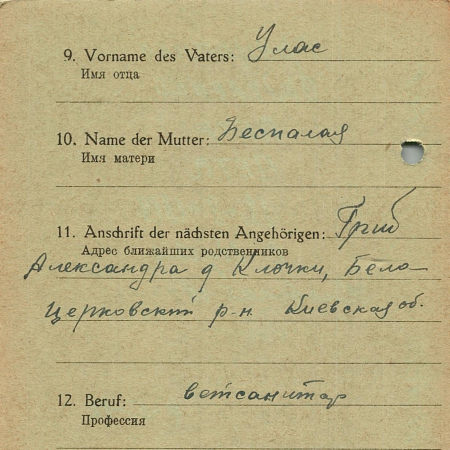 9. Vorname des Vaters: Улас
Имя отца
10. Name der Mutter: Беспалая
Имя матери
11. Anschrift der nächsten Angehörigen: Гриб
Адрес ближайших родственников
Александра д Клочки, Бело-
церковский р-н. Киевская об.
12. Beruf: ветсанитар
Профессия